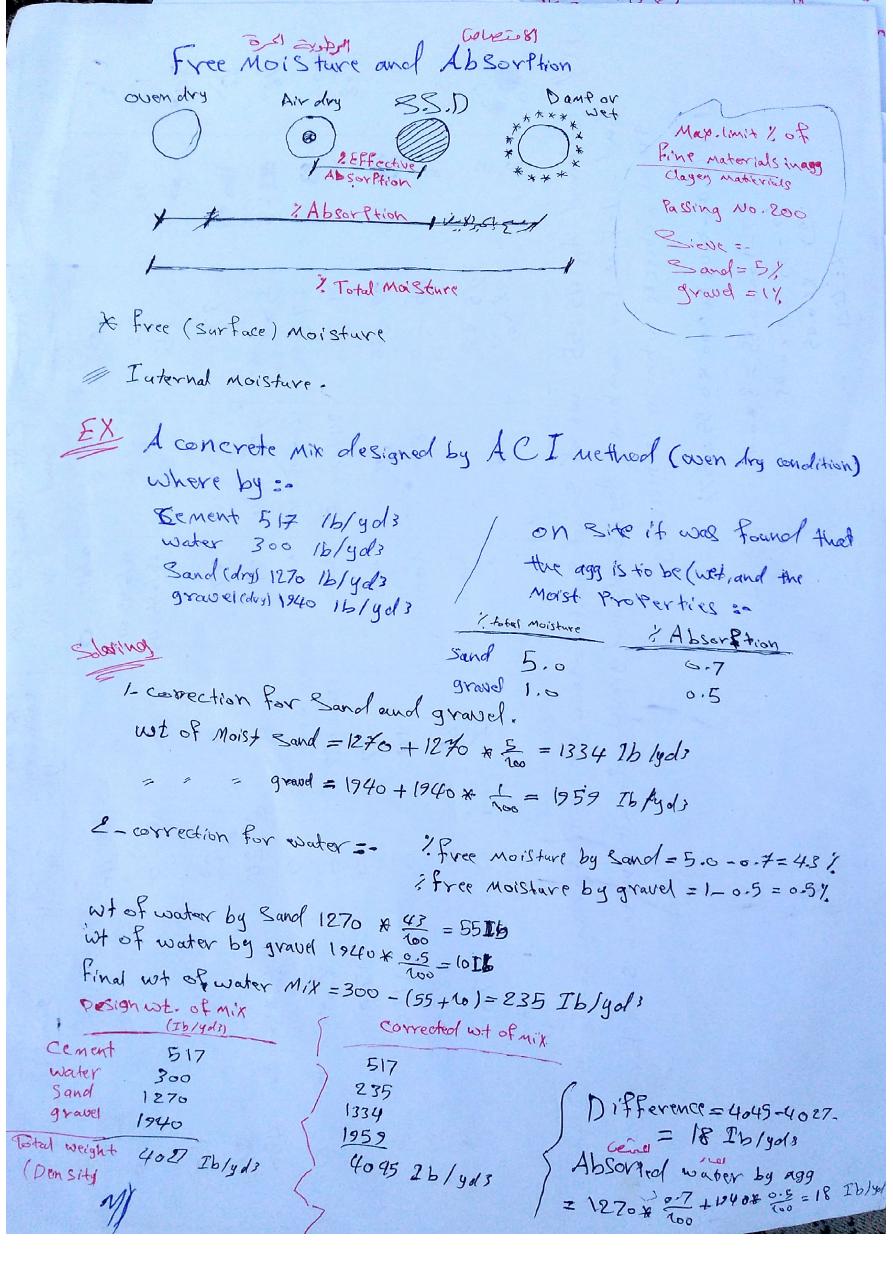 الرطوبة الحرة الامتصاص
Free Moisture and Absorption
oven dry Air dry S.S.D Damp or wet
% Effective
Absorption
% Absorption
% Total Moisture
Max. limit % of
Fine Materials in agg
Clayey Materials
Passing No. 200
Sieve :-
Sand = 5%
gravel = 1%
* Free (surface) Moisture
Internal moisture.
EX A concrete Mix designed by ACI Method (oven dry condition)
where by :-
Cement 517 lb/yd3
water 300 lb/yd3
Sand (dry) 1270 lb/yd3
gravel (dry) 1940 lb/yd3
on site it was found that
the agg is to be (wet, and the
Moist Properties :-
% total moisture % Absorption
Sand 5.0 0.7
gravel 1.0 0.5
Solving
1- correction for Sand and gravel.
wt of Moist Sand = 1270 + 1270 * 5/100 = 1334 Ib/yd3
" " " gravel = 1940 + 1940 * 1/100 = 1959 Ib/yd3
2- correction for water :-
% free moisture by Sand = 5.0 - 0.7 = 4.3 %
% free Moisture by gravel = 1 - 0.5 = 0.5 %
wt of water by Sand 1270 * 43/100 = 55 Ib
wt of water by gravel 1940 * 0.5/100 = 10 Ib
final wt of water Mix = 300 - (55 + 10) = 235 Ib/yd3
Design wt. of mix
(Ib/yd3)
Cement 517
water 300
Sand 1270
gravel 1940
Total weight 4027 Ib/yd3
(Density
Corrected wt of mix
517
235
1334
1959
4045 Ib/yd3
Difference = 4045 - 4027
= 18 Ib/yd3
Absorbed water by agg
= 1270 * 0.7/100 + 1940 * 0.5/100 = 18 Ib/yd